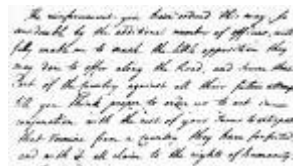 The reinforcement you have ordered this way, so
considerably by the additional number of officers, will
fully enable us to meet the little opposition they
may dare to offer along the Road, and secure this
Part of the Country against all their future attempts
till you think proper to order us to act in
conjunction with the rest of your Forces to extirpate
that Vermine from a Country they have forfeited
and with it all claim to the rights of humanity